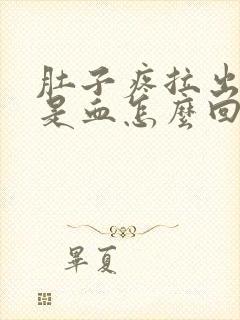 肚子疼拉出
是血怎麼回
畢夏